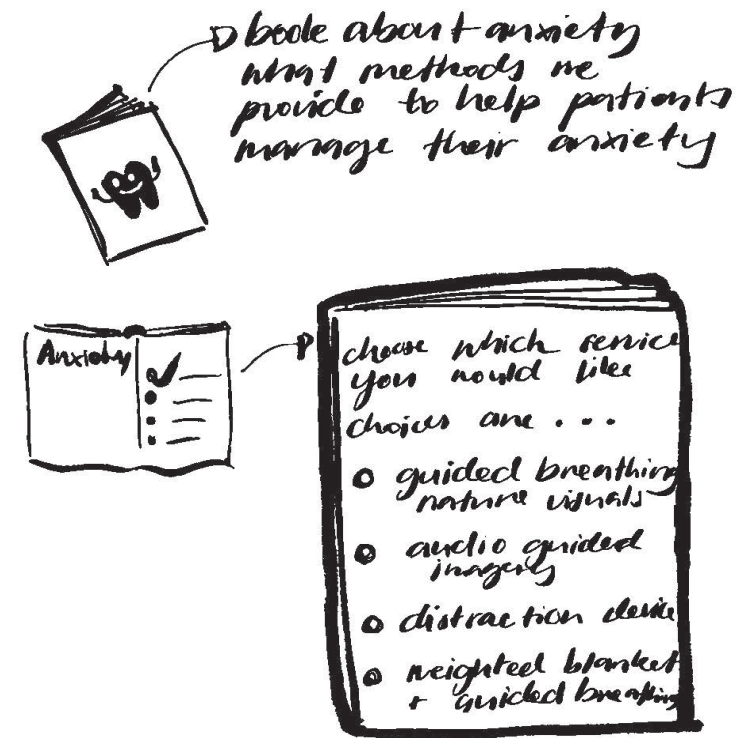 book about anxiety
what methods we
provide to help patients
manage their anxiety
Anxiety
choose which service
you would like
choices are ...
guided breathing
nature visuals
audio guided
imagery
distraction device
weighted blanket
+ guided breathing